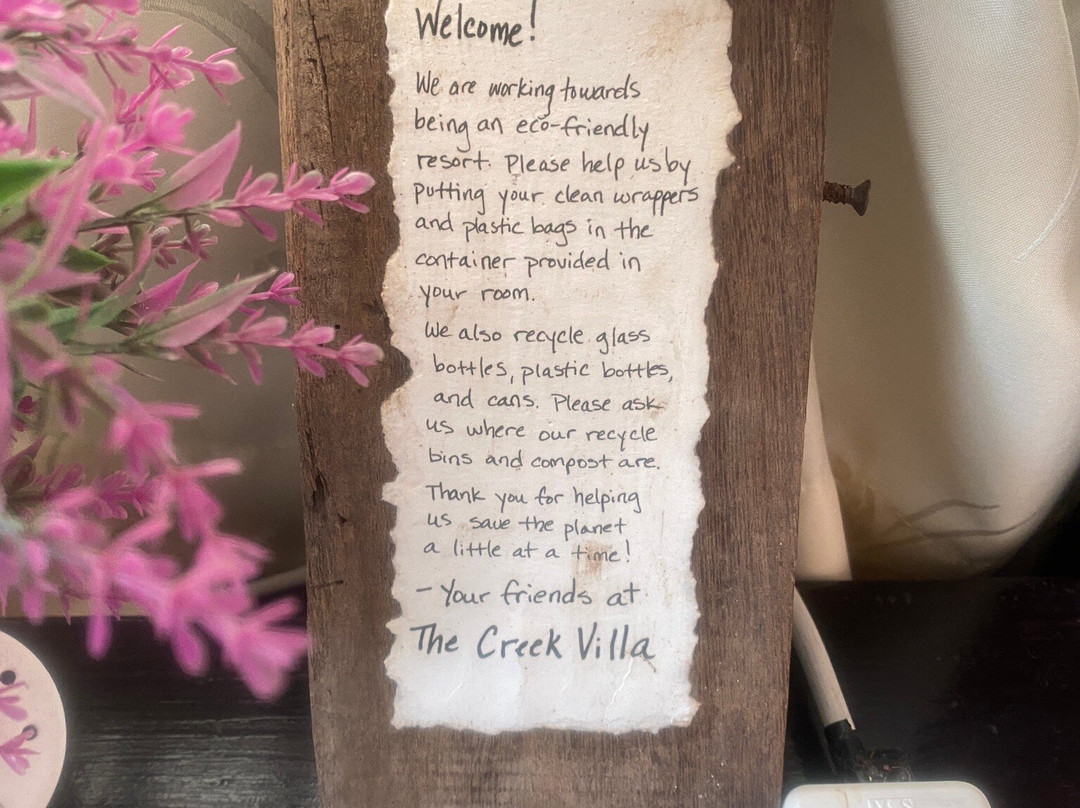 Welcome!
We are working towards
being an eco-friendly
resort. Please help us by
putting your clean wrappers
and plastic bags in the
container provided in
your room.
We also recycle glass
bottles, plastic bottles,
and cans. Please ask
us where our recycle
bins and compost are.
Thank you for helping
us save the planet
a little at a time!
- Your friends at
The Creek Villa